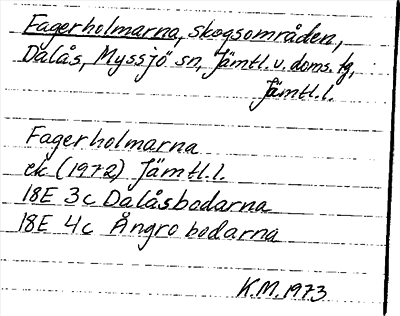 Fagerholmarna, skogsområden,
Dalås, Myssjö sn, Jämtl. v. doms. tg,
Jämtl.l.
Fagerholmarna
ek (1972) Jämtl.l.
18E 3c Dalåsbodarna
18E 4c Ångrobodarna
K.M. 1973